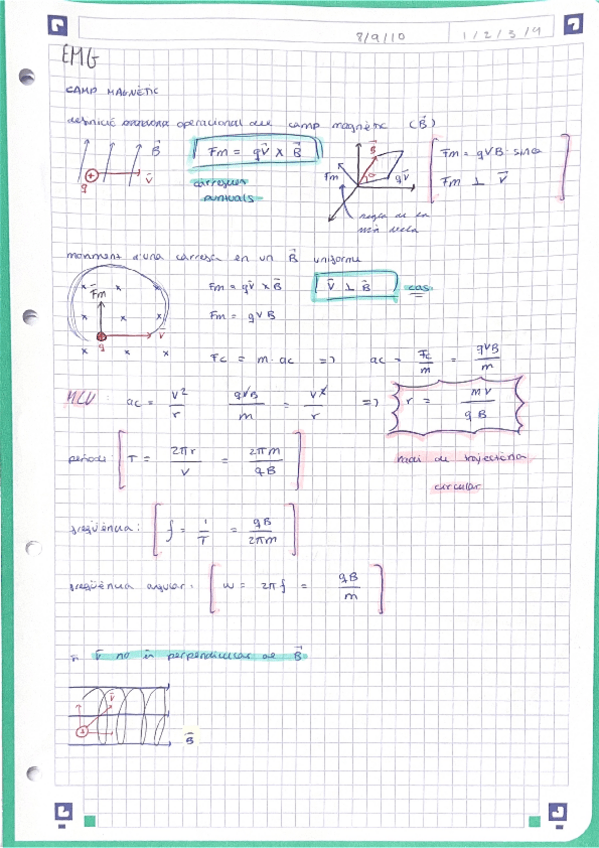 8/9/10 1/2/3/4
EMG
CAMP MAGNÈTIC
operacional del camp magnètic (B⃗)
B⃗
q
v⃗
Fm = qv⃗ × B⃗
càrregues
puntuals
B⃗
Fm
α
qv⃗
regla de la
mà dreta
Fm = qvB · sinα
Fm ⊥ v⃗
moviment d'una càrrega en un B⃗ uniforme
F⃗m
q
v⃗
Fm = qv⃗ × B⃗
v⃗ ⊥ B⃗ cas
Fm = qvB
Fc = m · ac => ac = Fc/m = qvB/m
MCU: ac = v²/r qvB/m = v²/r => r = mv/qB
radi de trajectòria
circular
període: T = 2πr/v = 2πm/qB
freqüència: f = 1/T = qB/2πm
freqüència angular: w = 2πf = qB/m
v⃗ no és perpendicular al B⃗
v⃗
B⃗